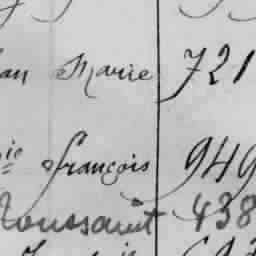 an Marie 721
ie françois 949
Toussaint 438